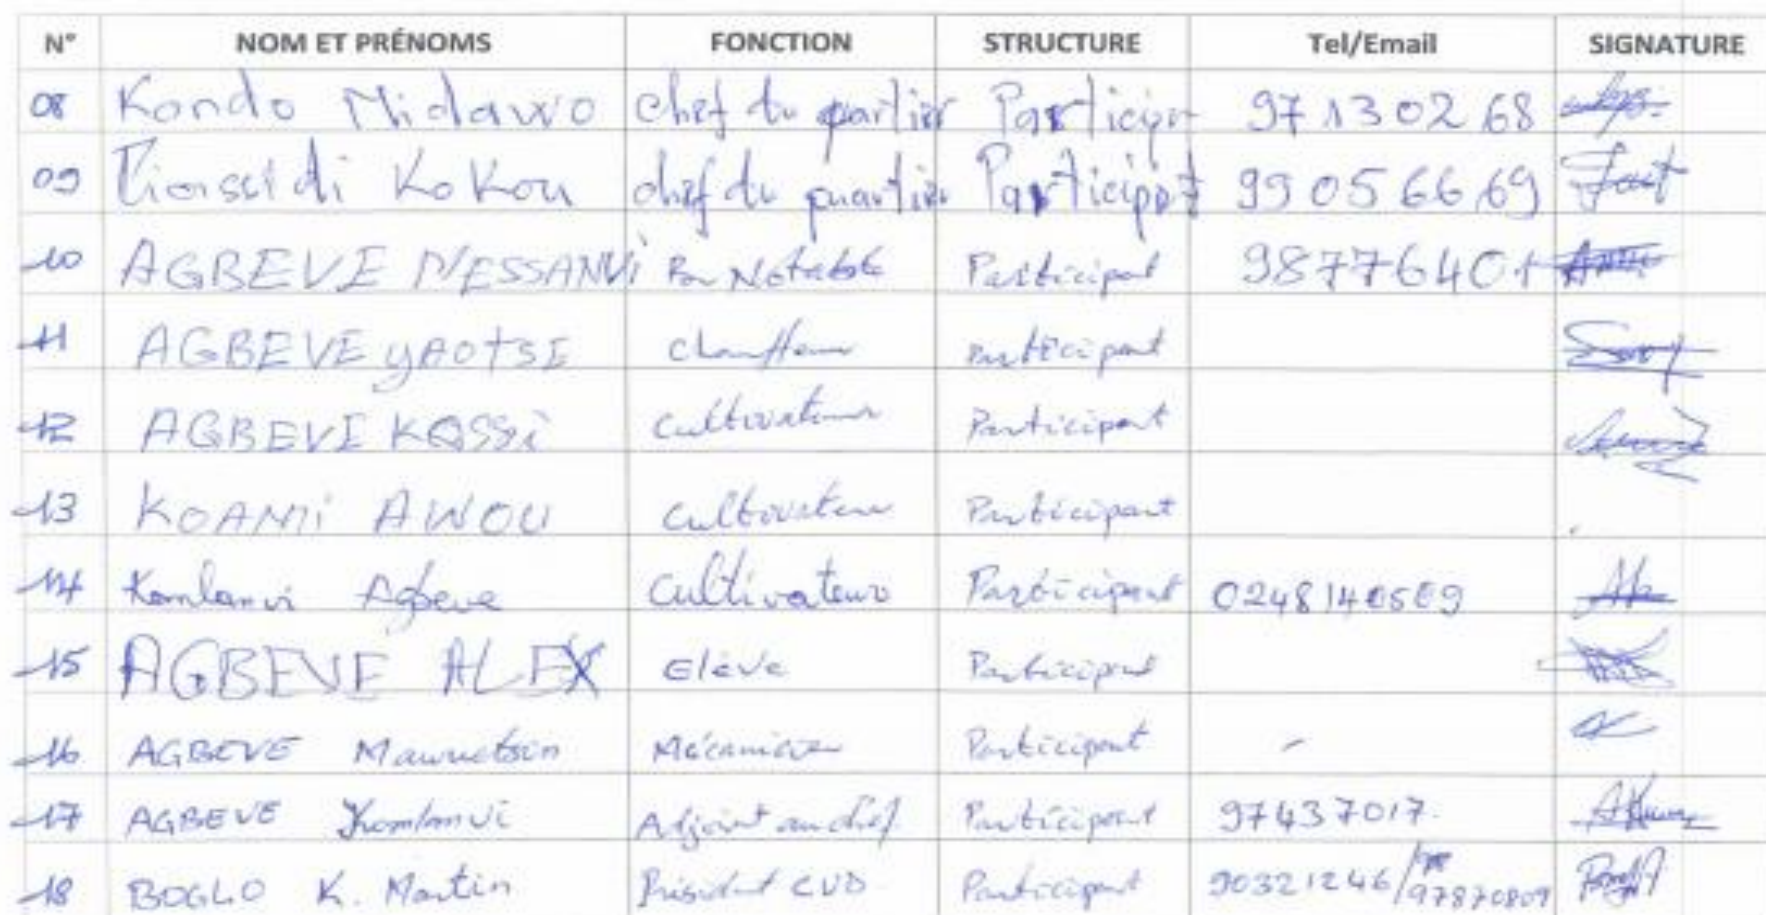 N° NOM ET PRÉNOMS FONCTION STRUCTURE Tel/Email SIGNATURE
08 Kondo Midawo chef du quartier Participant 97130268
09 Kokou chef du quartier Participant 99056669
10 AGBEVE N'ESSANVI Notable Participant 98776401
11 AGBEVE YAOTSE Chauffeur Participant
12 AGBEVE KOSSI Cultivateur Participant
13 KOAMI AWOU Cultivateur Participant
14 Komlanvi Agbeve Cultivateur Participant
15 AGBEVE ALEX Elève Participant
16 AGBEVE Mécanicien Participant -
17 AGBEVE Komlanvi Adjoint au chef Participant 97437017
18 BOGLO K. Martin Président CVD Participant 90321246/97870809